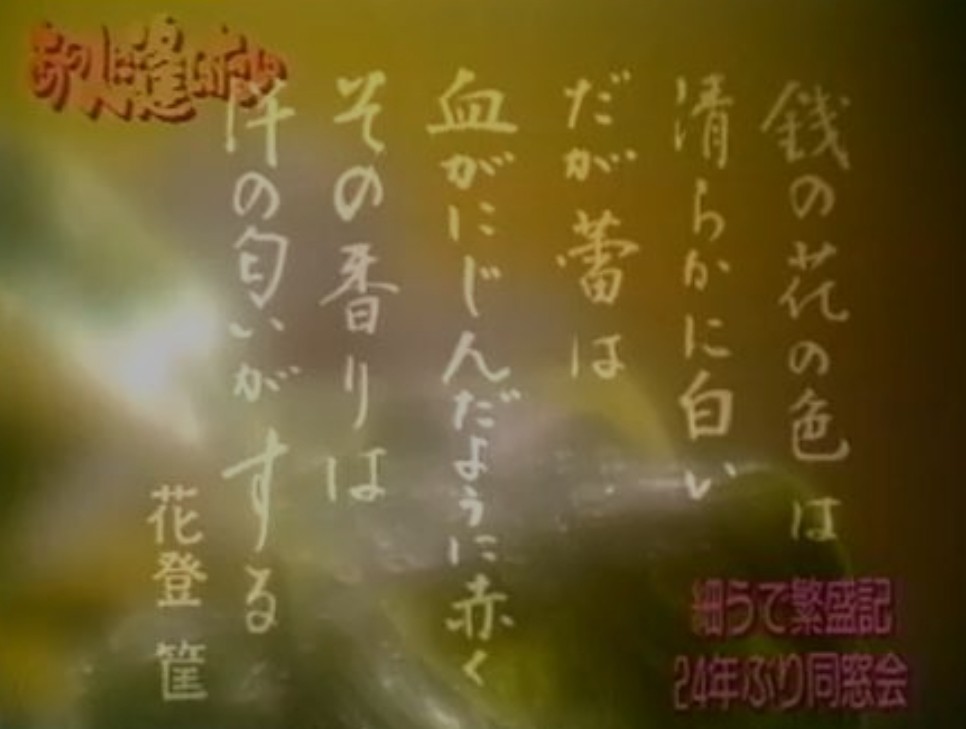 あの人に逢いたい
銭の花の色は
清らかに白い
だが蕾は
血がにじんだように赤く
その香りは
汗の匂いがする
花登筐
細うで繁盛記
24年ぶり同窓会